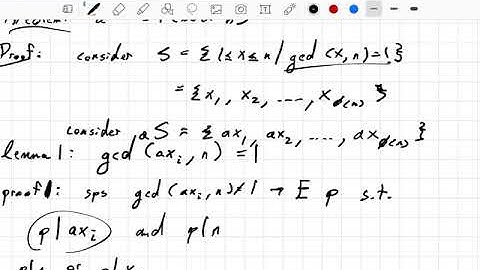 Proof: consider S = {1≤x≤n | gcd(x,n)=1}
= {x₁, x₂, ..., x_φ(n)}
consider aS = {ax₁, ax₂, ..., ax_φ(n)}
lemma 1: gcd(axᵢ, n) = 1
proof 1: sps gcd(axᵢ, n)≠1 → E p s.t.
p | axᵢ and p|n